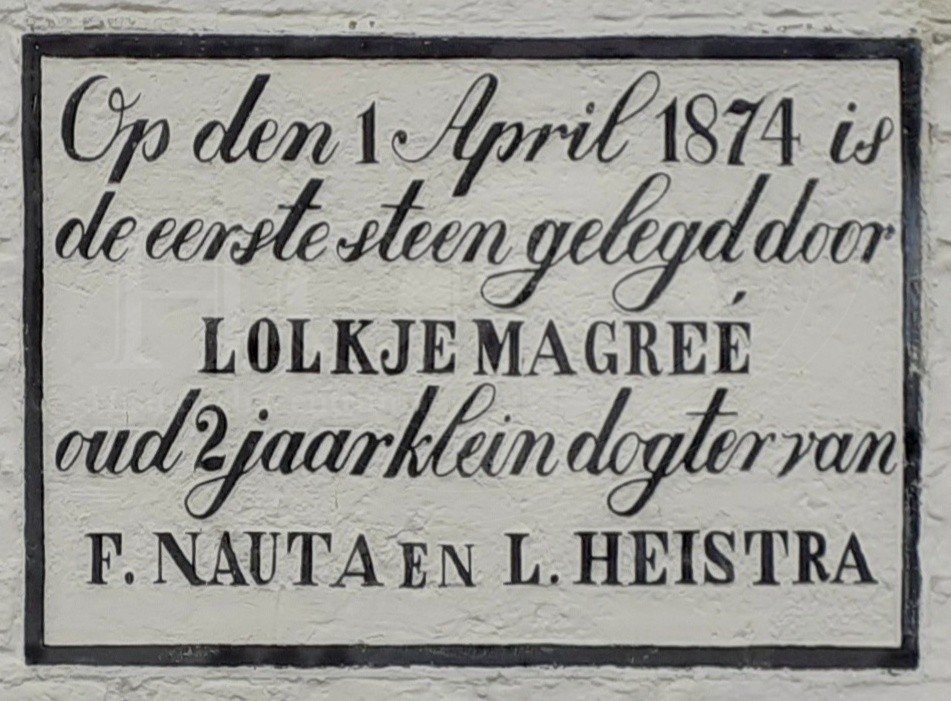 Op den 1 April 1874 is
de eerste steen gelegd door
LOLKJE MAGREÉ
oud 2 jaar klein dogter van
F. NAUTA EN L. HEISTRA